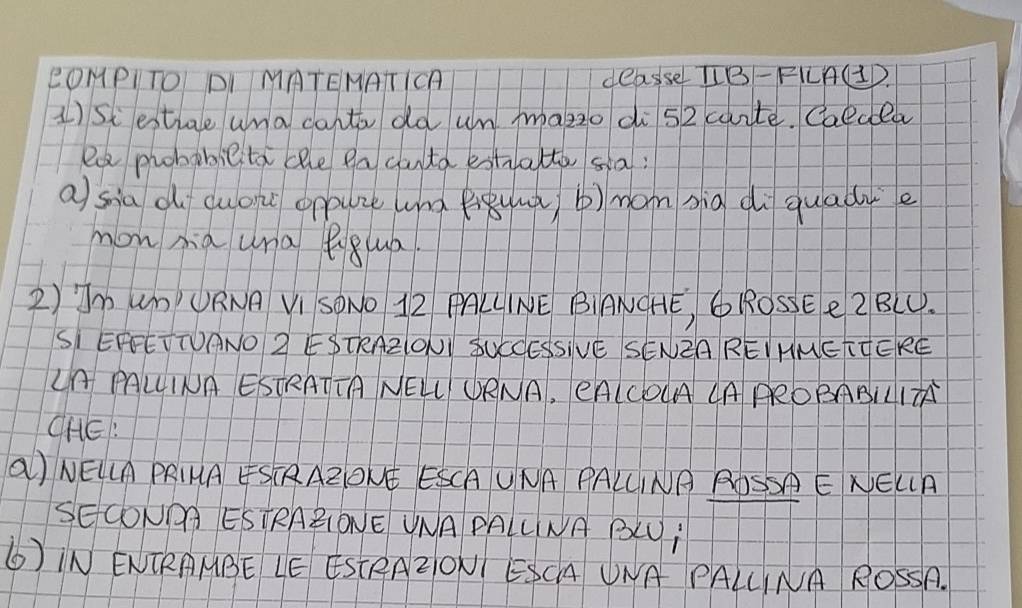 COMPITO DI MATEMATICA classe IIB-FILA(1).
1) Si estrae una carta da un mazzo di 52 carte. Calcola
la probabilità che la carta estratta sia:
a) sia di cuori oppure una figura; b) non sia di quadri e
non sia una figura.
2) In un' URNA VI SONO 12 PALLINE BIANCHE, 6 ROSSE e 2 BLU.
SI EFFETTUANO 2 ESTRAZIONI SUCCESSIVE SENZA REIMMETTERE
LA PALLINA ESTRATTA NELL'URNA. CALCOLA LA PROBABILITÀ
CHE:
a) NELLA PRIMA ESTRAZIONE ESCA UNA PALLINA ROSSA E NELLA
SECONDA ESTRAZIONE UNA PALLINA BLU;
b) IN ENTRAMBE LE ESTRAZIONI ESCA UNA PALLINA ROSSA.